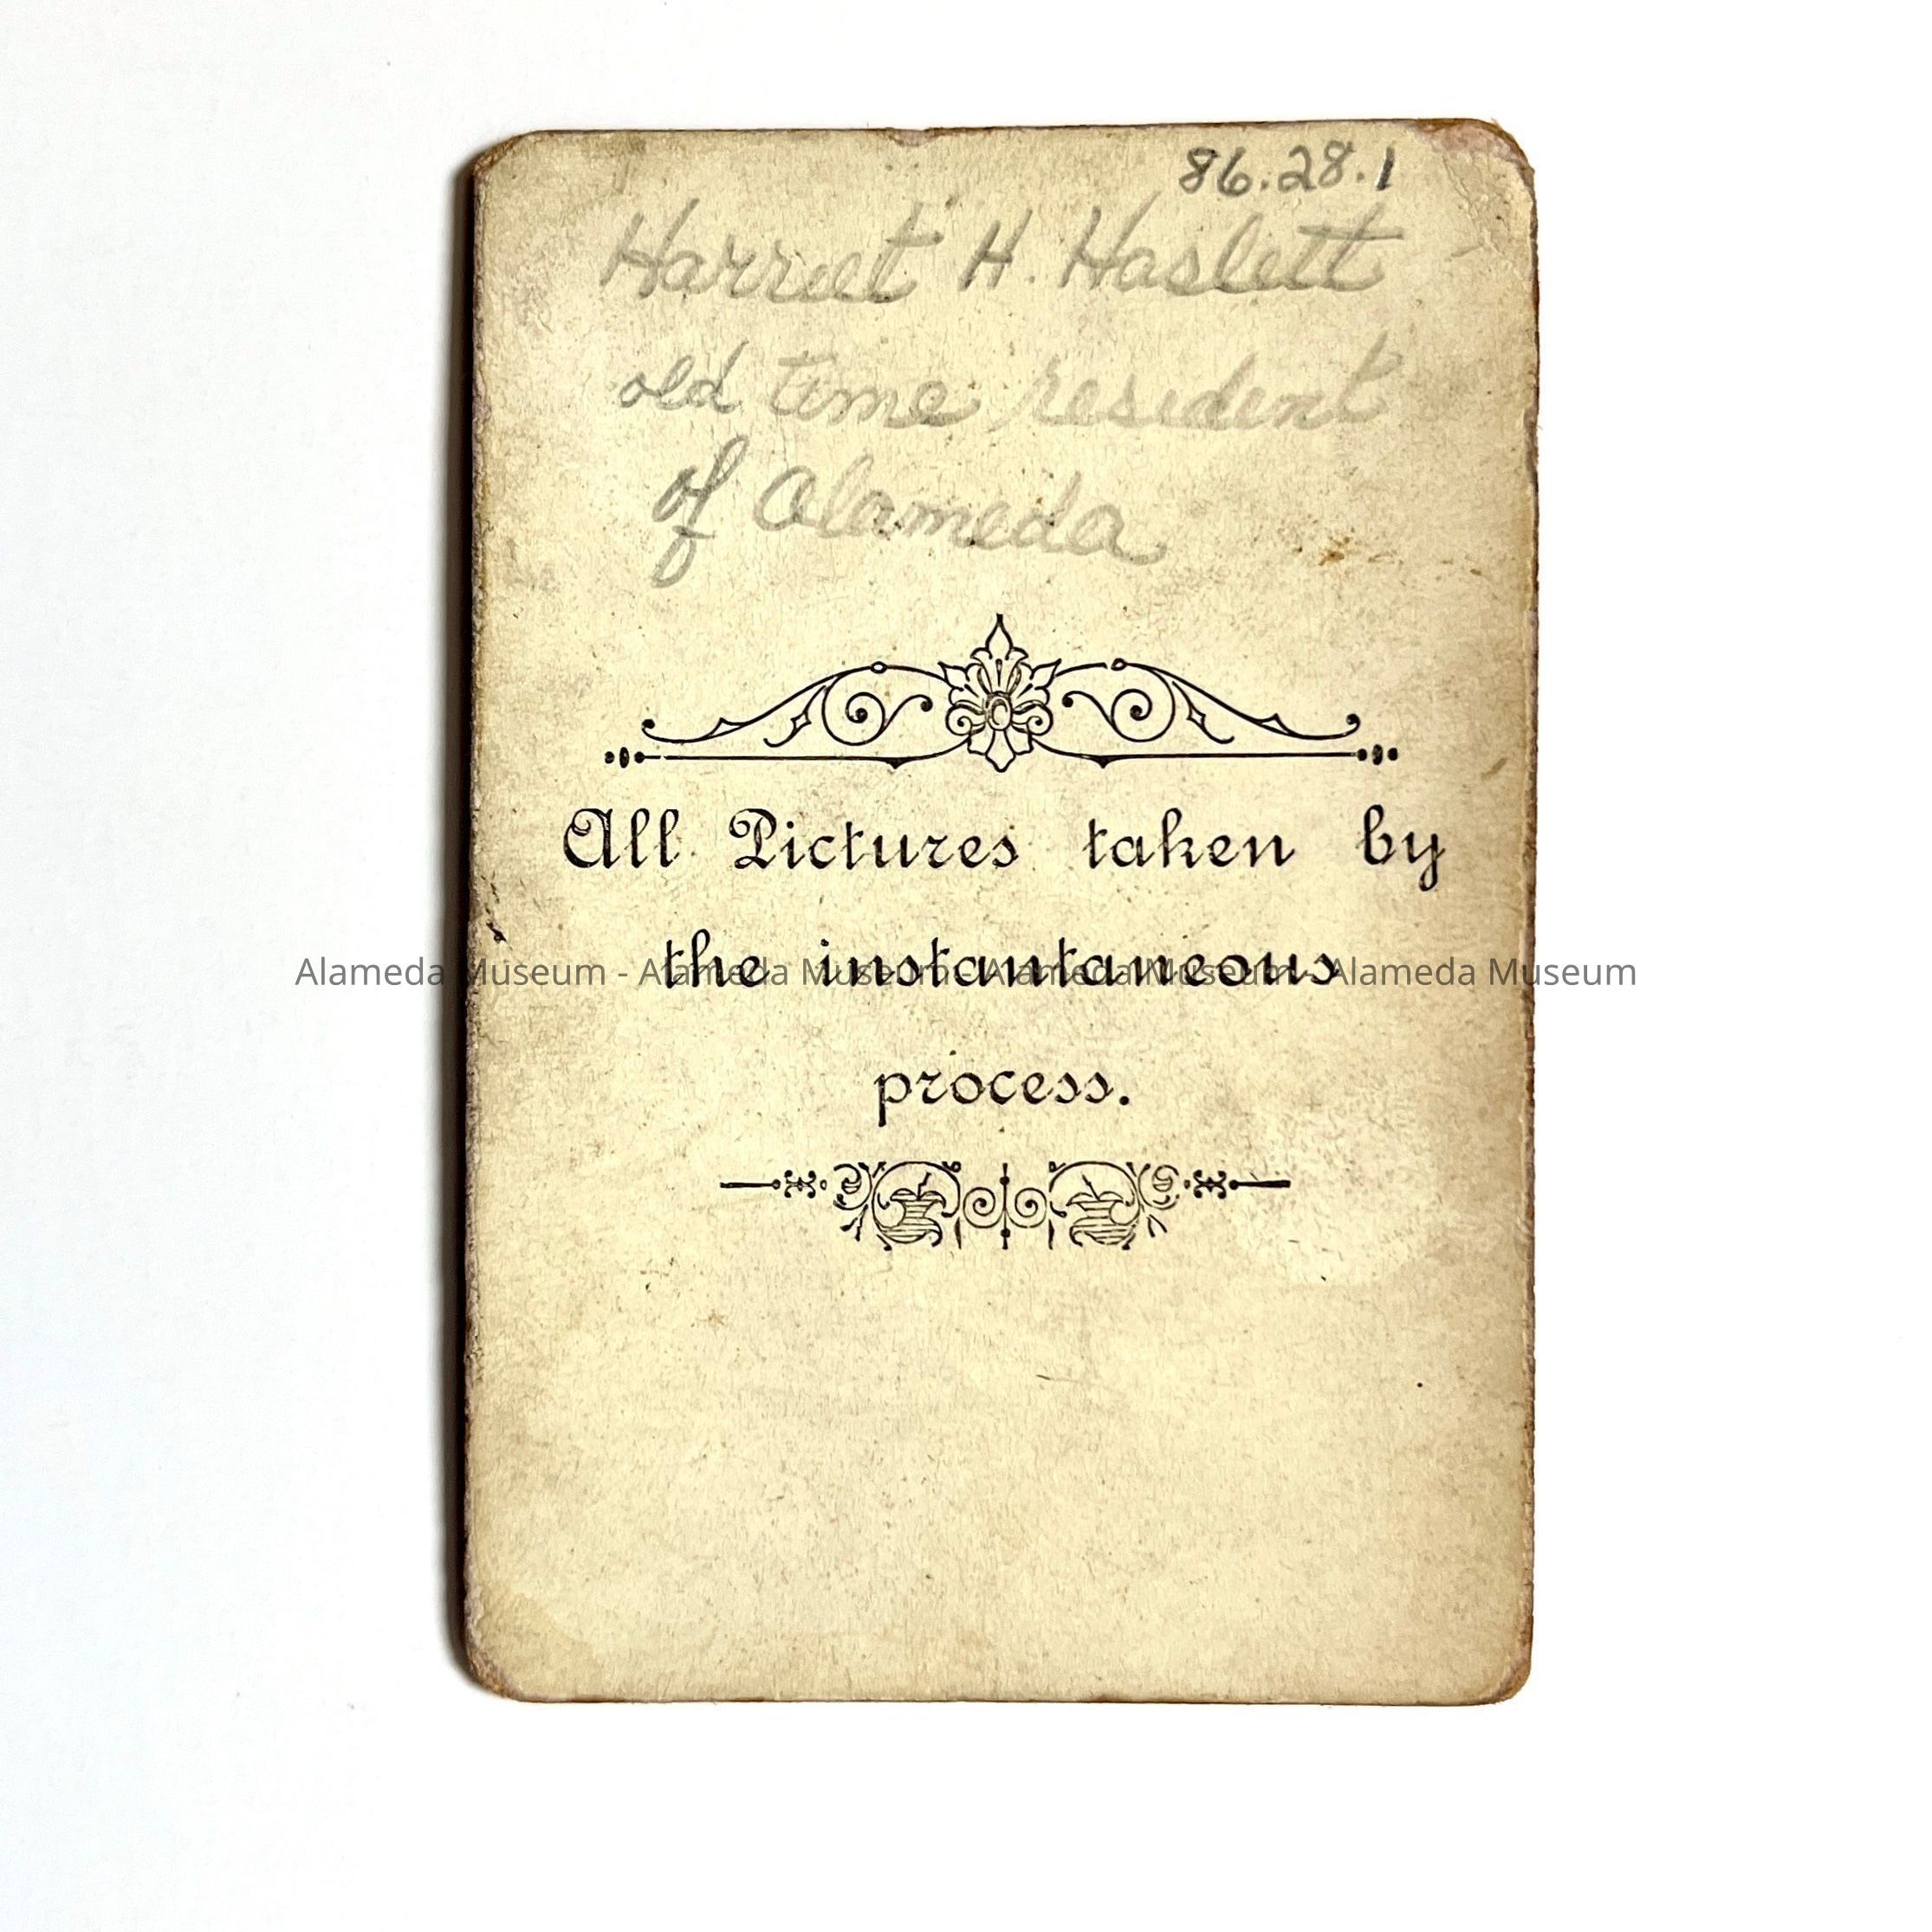 86.28.1
Harriet H. Haslett
old time resident
of Alameda
All Pictures taken by
the instantaneous
process.
Alameda Museum - Alameda Museum - Alameda Museum - Alameda Museum